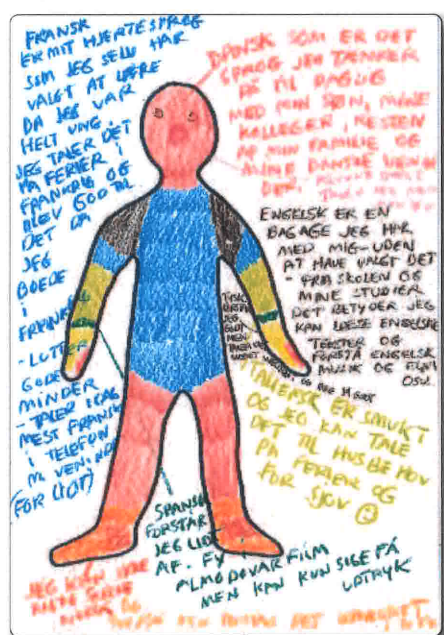 FRANSK
ER MIT HJERTESPROG
SOM JEG SELV HAR
VALGT AT LÆRE
DA JEG VAR
HELT UNG.
JEG TALER DET
PÅ FERIER I
FRANKRIG OG
BLEV GOD TIL
DET DA
JEG
BOEDE
I
FRANKRIG
- LUTTER
GODE
MINDER
- TALER IDAG
MEST FRANSK
I TELEFON
M. VENINDE
(FOR LIDT)
DANSK SOM ER DET
SPROG JEG TÆNKER
PÅ TIL DAGLIG
MED MIN SØN, MINE
KOLLEGER, RESTEN
AF MIN FAMILIE OG
MINE DANSKE VEN
DER.
ENGELSK ER EN
BAGAGE JEG HAR
MED MIG - UDEN
AT HAVE VALGT DET
- FRA SKOLEN OG
MINE STUDIER
DET BETYDER JEG
KAN LÆSE ENGELSKE
TEKSTER OG
FORSTÅ ENGELSK
MUSIK OG FILM
OSV.
TYSK
JEG
GODT
MEN
ITALIENSK ER SMUKT
OG JEG KAN TALE
DET TIL HUSBEHOV
PÅ FERIER OG
FOR SJOV
SPANSK
FORSTÅR
JEG LIDT
AF. FX
ALMODOVAR FILM
MEN KAN KUN SIGE FÅ
UDTRYK
JEG KAN IKKE